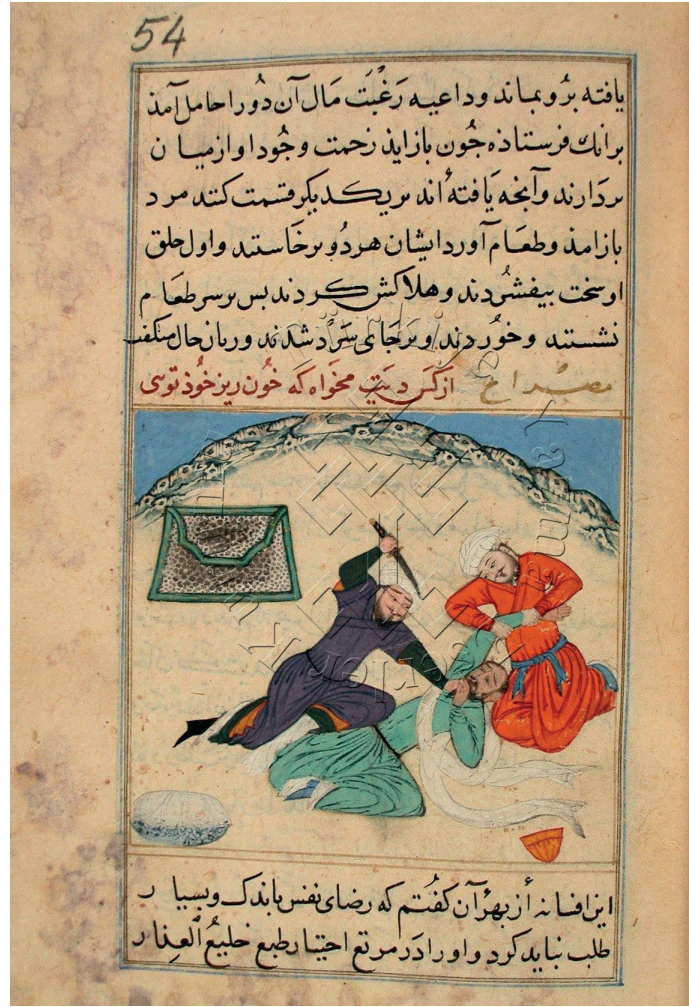 54
یافته برو بماند و داعیه رَغبَت مَال آن دُو را حامل آمذ
برانك فرستاذه جُون بازایذ زحمت وجُود او از میان
بردَارند و آنجه یَافتهٔ اند بر یکدیکر قسمت کنند مرد
بازامذ و طعَام آورد ایشان هر دُو برخَاستند و اول حلق
او سخت بیفشُردند و هلاکش کردند بس بر سر طعَام
نشستند و خوُردند و بر جَای سَرد شدند و زبان حال میکفت
مصراع از کس دیَت مخَواه که خُون ریز خُوذ توسی
این افسانه أز بهر آن کفُتم که رضای نفس باندک و بسیار
طلب نبایذ کرد و او را دَر مرتع اختیار طبع خلیعُ العِذار